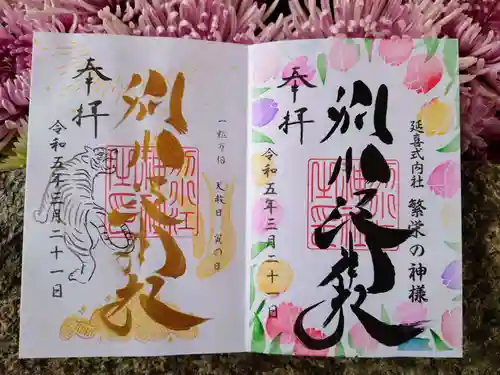 延喜式内社 繁栄の神様
別小江神社
奉拝
令和五年三月二十一日
一粒万倍 天赦日 寅の日
別小江神社
奉拝
令和五年三月二十一日